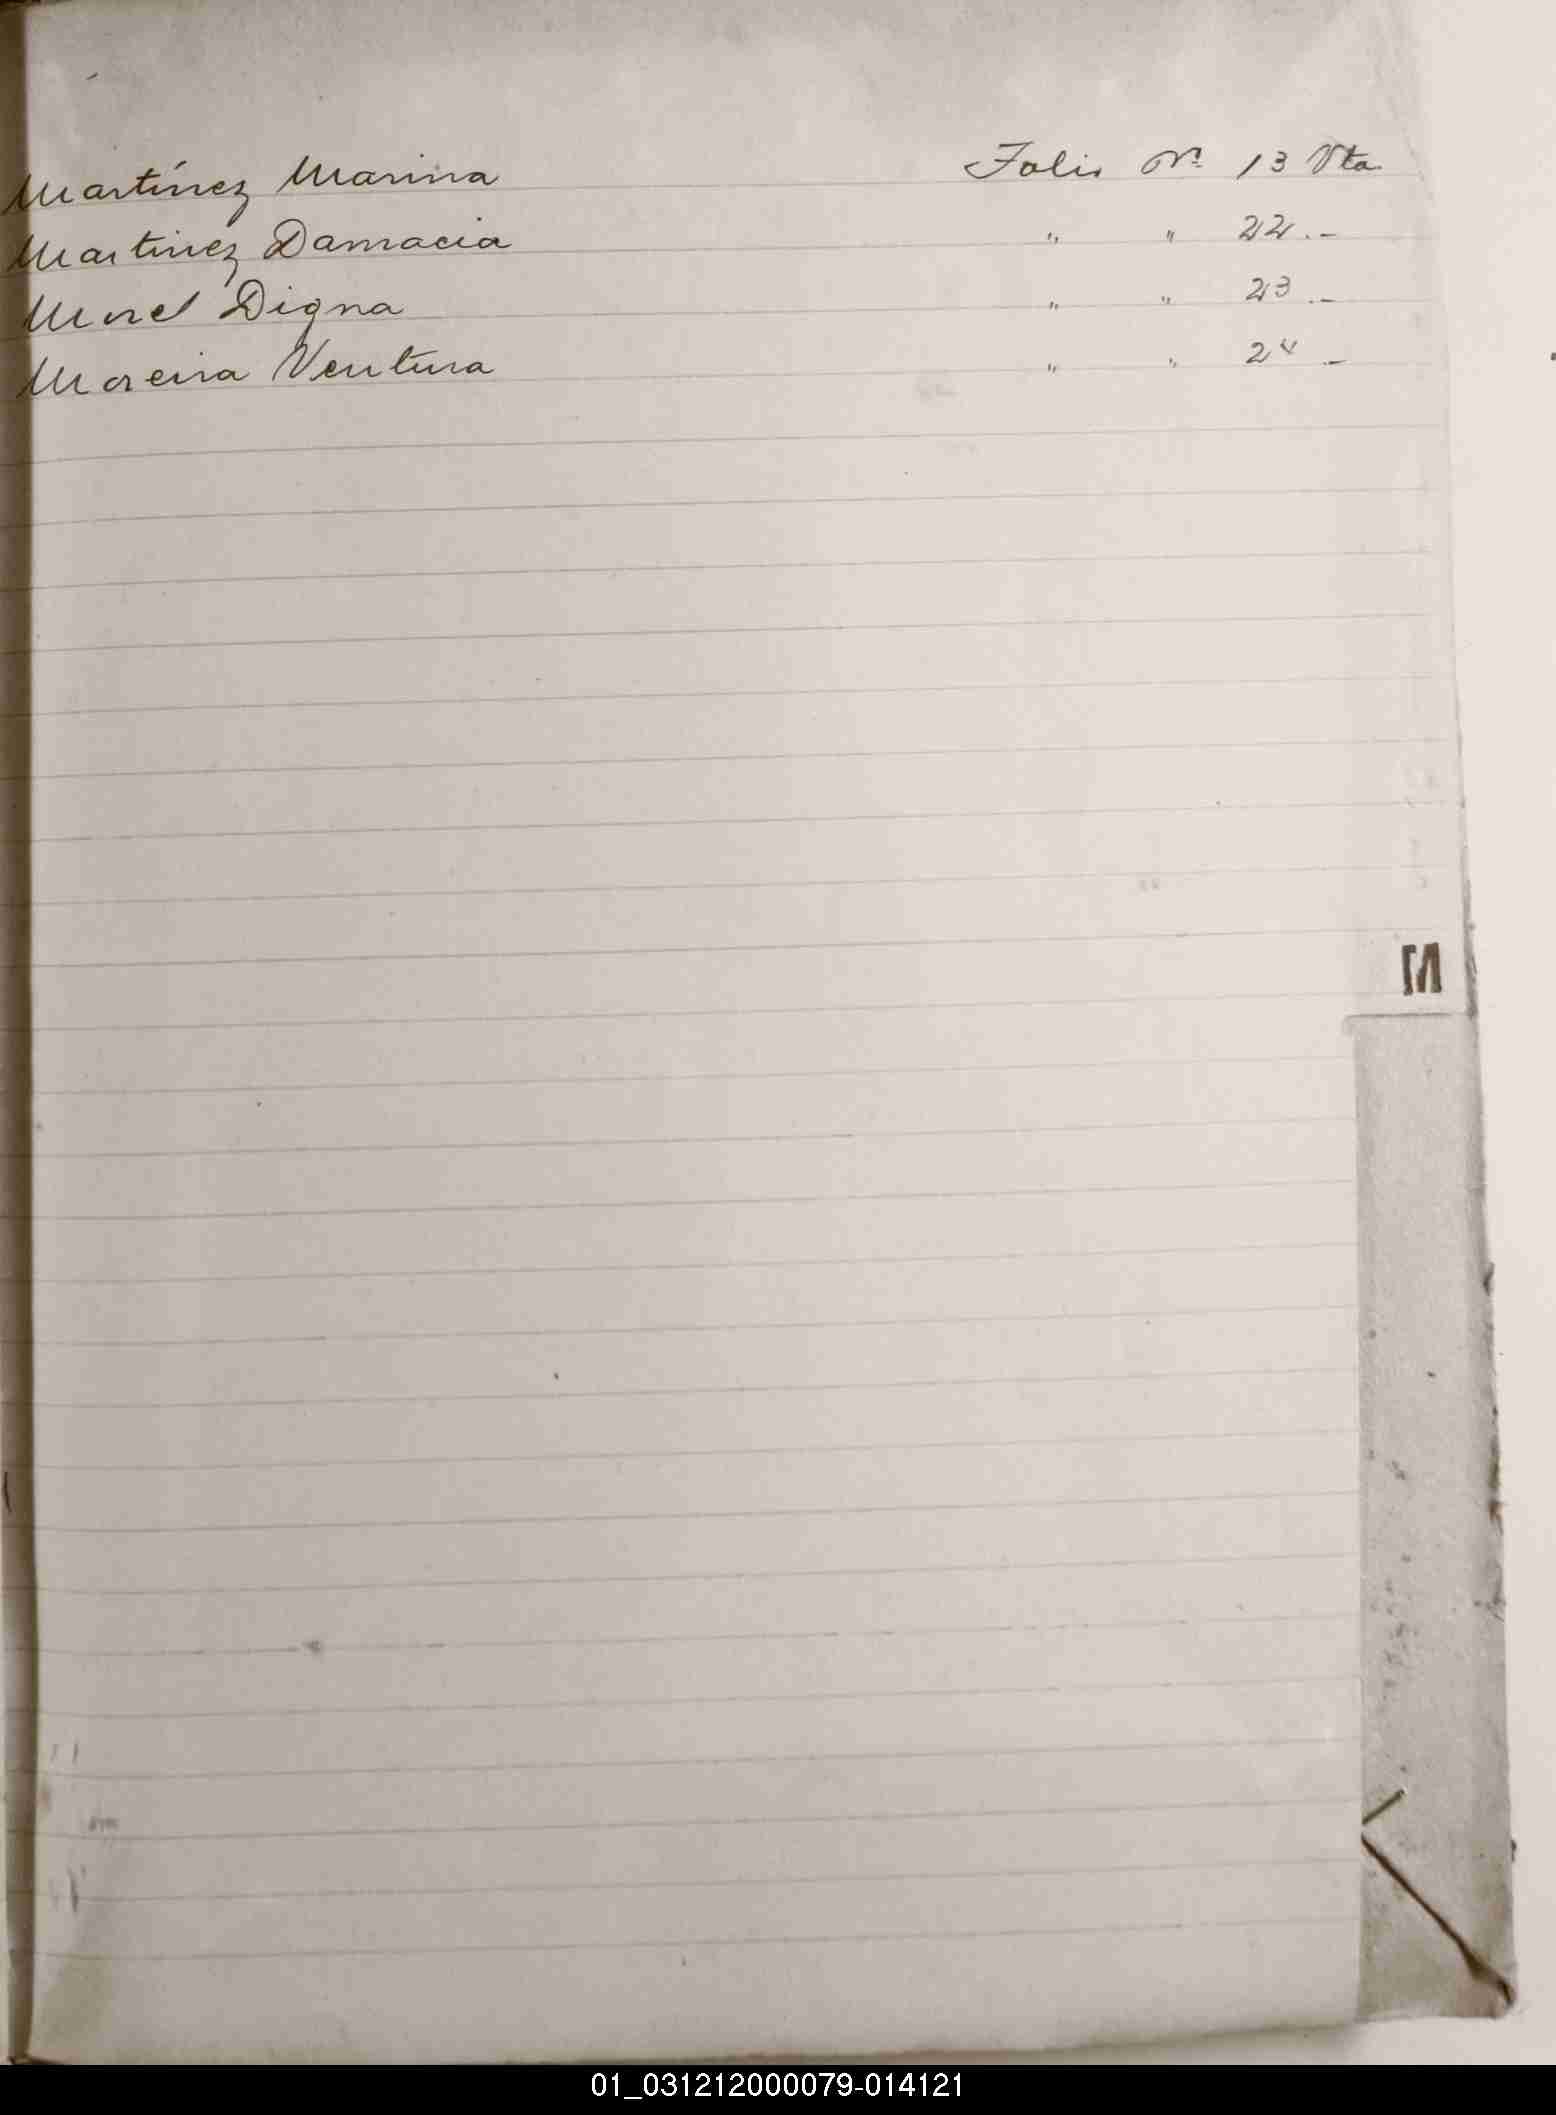 Martínez Marina Folio Nº 13 Vta
Martinez Damacia " " 22.-
Morel Digna " " 23.-
Moreira Ventura " " 24-
M
01_031212000079-014121